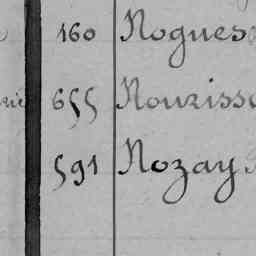 160 Nogues
655 Nouriss
591 Nozay